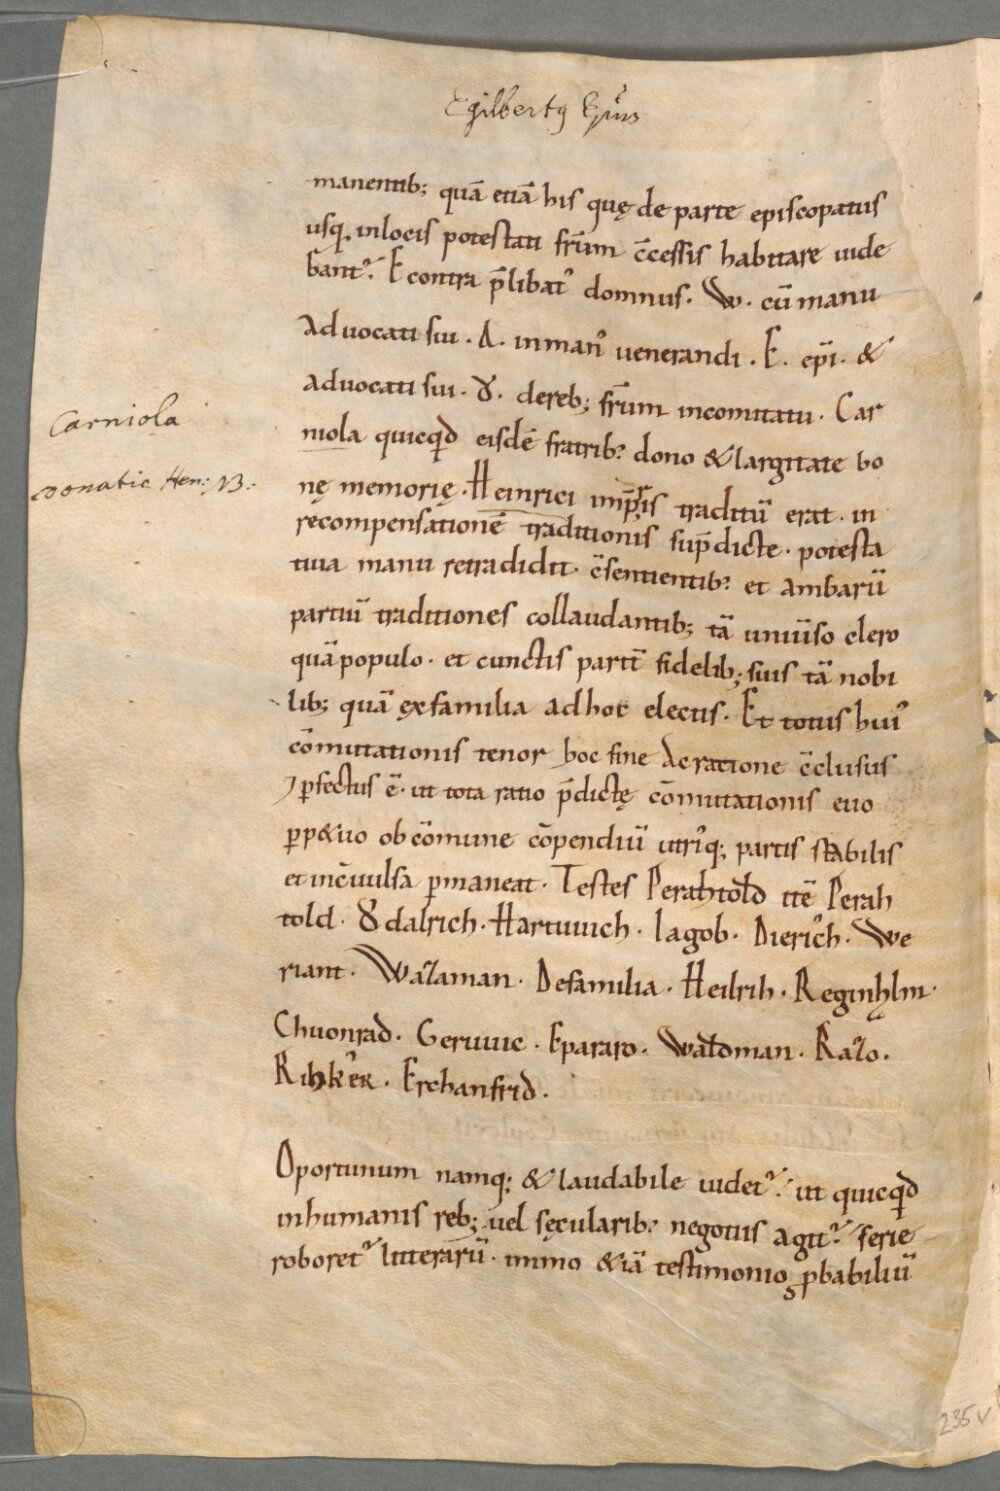 Egilbertꝯ Ep̃us
manentib; quā etiā his quę de parte episcopatus
usq, inlocis potestati frm̄ c̄cessis habitare uide
bant᷒. E contra p̄libat᷒ domnus. W. cū manu
aduocati sui. A. inman᷒ uenerandi. E. ep̄i. &
aduocati sui. Ȣ. dereb; frm̄ incomitatu. Car
Carniola
niola quicq̇d eisdē fratrib᷒ dono & largitate bo
donatio Hen: B:
nę memorię. Heinrici imp̄ris traditū erat. in
recompensationē traditionis sup̄dicte. potesta
tiua manu retradidit. c̄sentientib᷒ et ambarū
partiū traditiones collaudantib; tā uniūso clero
quā populo. et cunctis partiū fidelib; suis tā nobi
lib; quā ęxfamilia adhoc electis. Et totus hui᷒
cōmutationis tenor hoc fine Ac ratione c̄clusus
⁊ ꝑfectus ē. ut tota ratio p̄dictę cōmutationis euo
ꝑp&uo ob cōmune cōpendiū utri᷒q; partis stabilis
et inc̄uulsa ꝑmaneat. Testes Perahtold itē Perah
told. Ȣdalrich. Hartuuich. Iagob. Dieri᷒ch. We
riant. Wazaman. Defamilia. Heilrih. Reginhlm.
Chuonrad. Geruuic. Epararo. Waldman. Razo.
Rihk᷒er. Erchanfrid.
Oportunum namq; & laudabile uidet᷒. ut quicq̇d
inhumanis reb; uel sęcularib᷒ negotiis agit᷒. serie
roboret᷒ litterarū. immo &iā testimonio ꝓbabiliū
235v